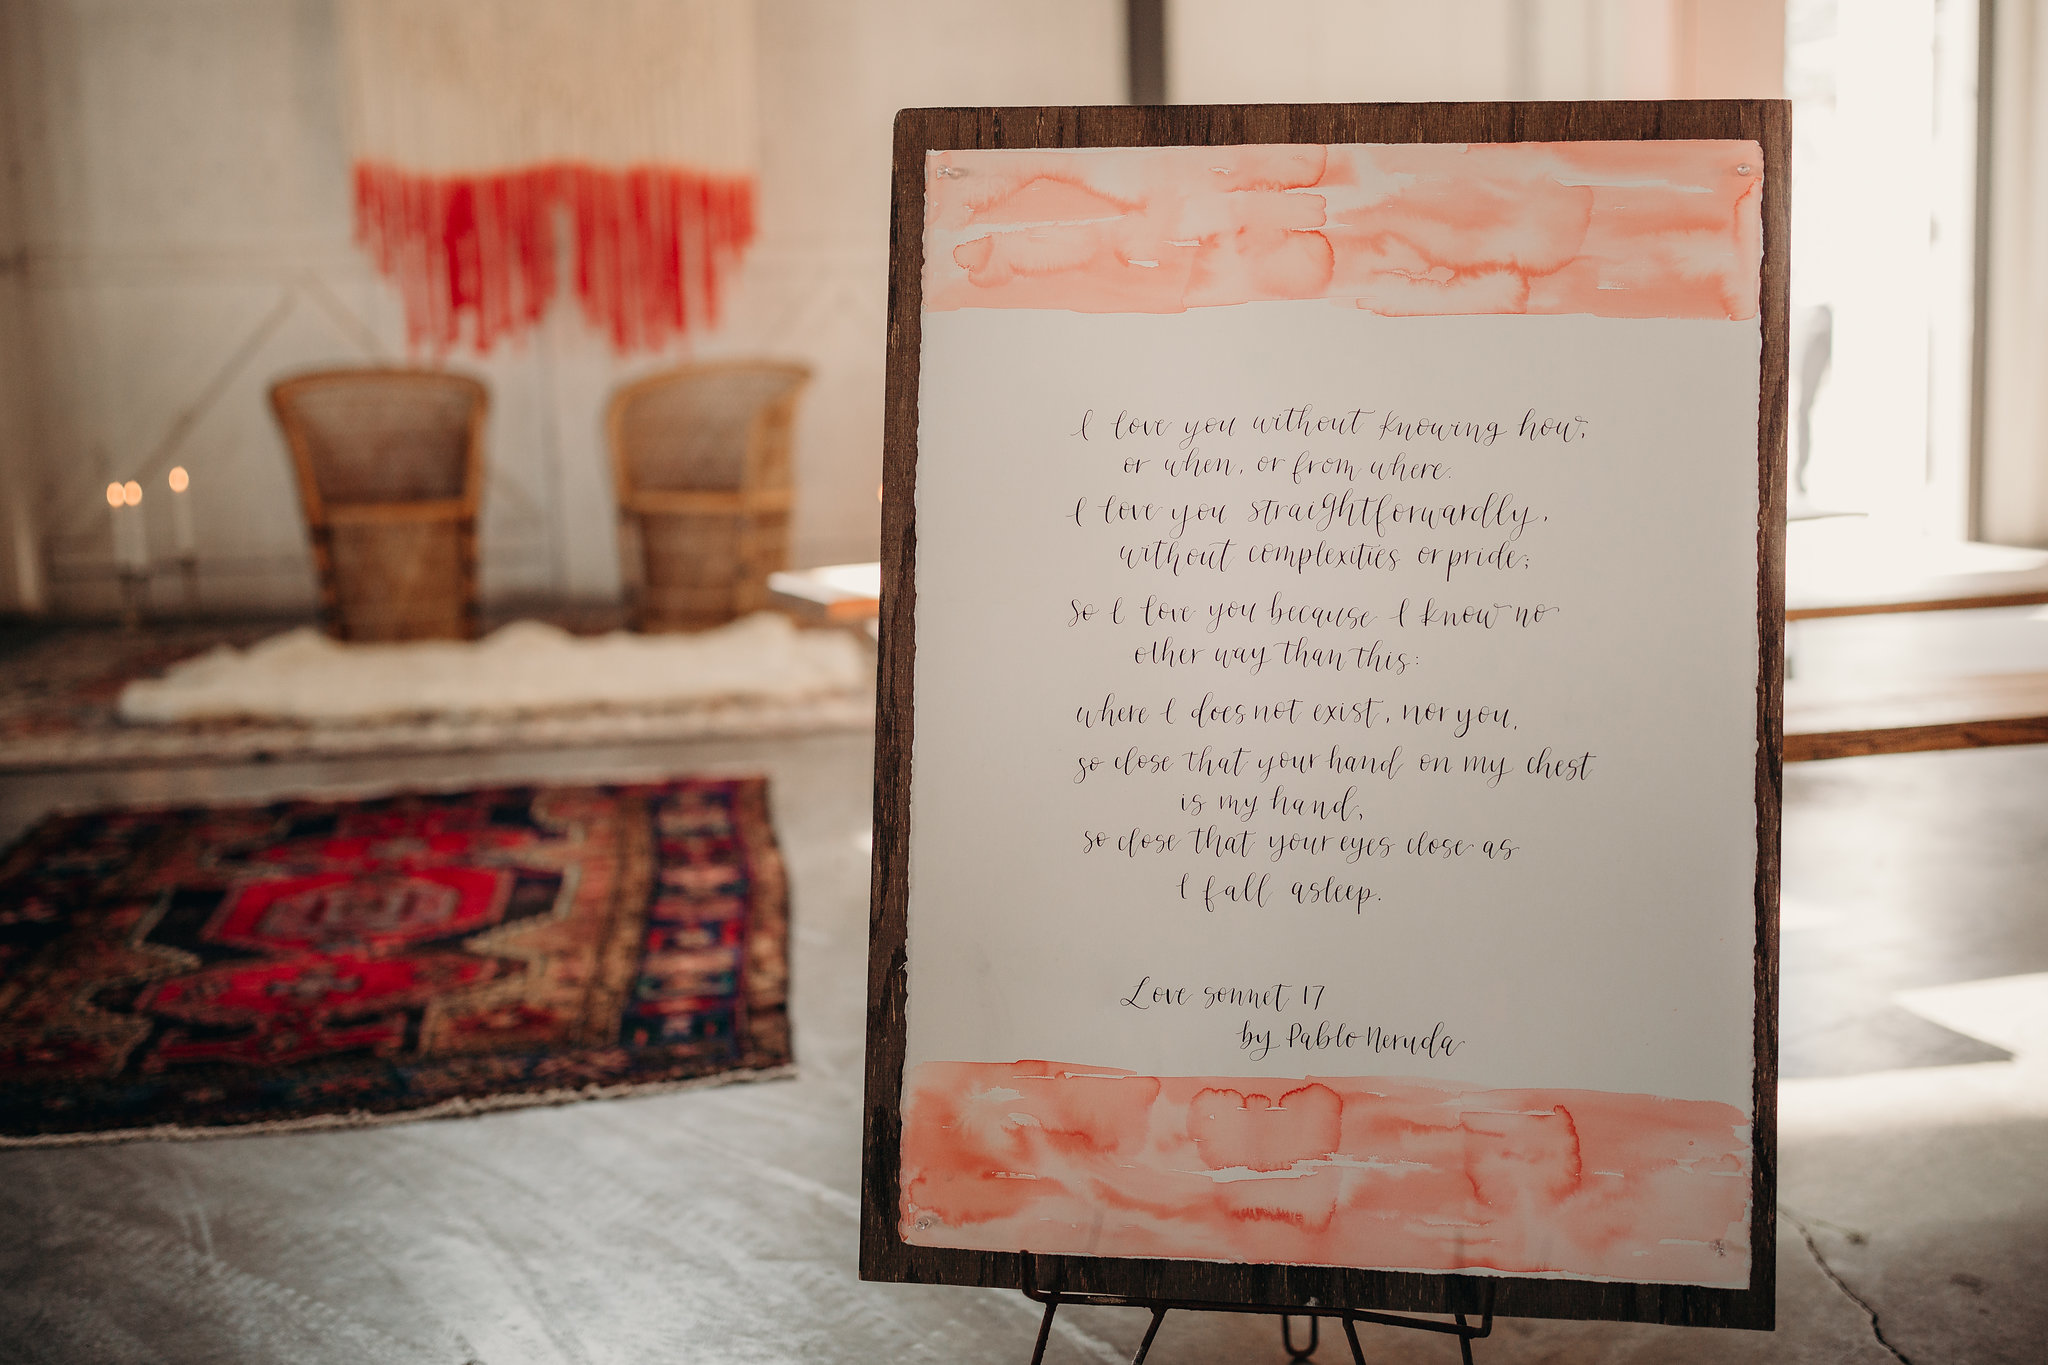 I love you without knowing how,
or when, or from where.
I love you straightforwardly,
without complexities or pride;
so I love you because I know no
other way than this:
where I does not exist, nor you,
so close that your hand on my chest
is my hand,
so close that your eyes close as
I fall asleep.
Love sonnet 17
by Pablo Neruda